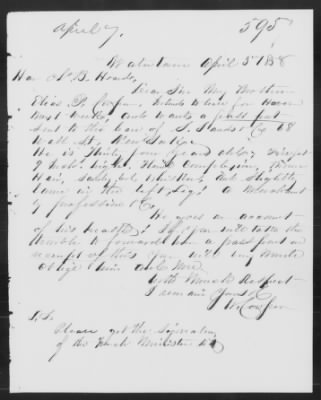 April 7. 595
Watertown April 5th 1858
Hon A. B. Hoards,
Dear Sir My Brother
Elias P. intends to leave for Havana
next week, and wants a passport
sent to the care of S. & Co 68
Wall St, New York
He is Thirty four years old, five feet
Light Complexion, Brown
Hair, and Slightly
lame in the left Leg. A
by profession &c.
He goes on account
of his health. If you will take the
trouble to forward him a passport on
receipt of this you will very much
oblige him and me
With Much Respect
I remain Yours &c
P.S.
Please get the Signature
of the Minister &c